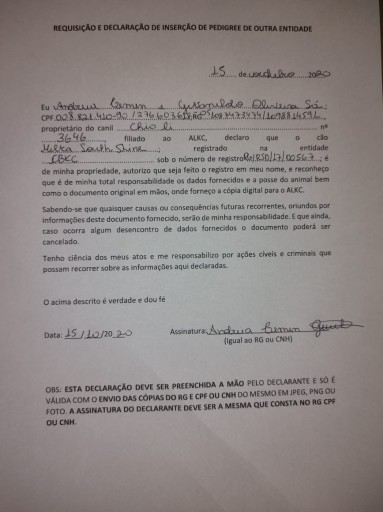 REQUISIÇÃO E DECLARAÇÃO DE INSERÇÃO DE PEDIGREE DE OUTRA ENTIDADE
15 de outubro 2020
Eu Andreia e Oliveira
CPF
proprietário do canil Chio li nº
3646 filiado ao ALKC, declaro que o cão
Melka South Shine registrado na entidade
CBKC sob o número de registro é
de minha propriedade, autorizo que seja feito o registro em meu nome, e reconheço
que é de minha total responsabilidade os dados fornecidos e a posse do animal bem
como o documento original em mãos, onde forneço a cópia digital para o ALKC.
Sabendo-se que quaisquer causas ou consequências futuras recorrentes, oriundos por
informações deste documento fornecido, serão de minha responsabilidade. E que ainda,
caso ocorra algum desencontro de dados fornecidos o documento poderá ser
cancelado.
Tenho ciência dos meus atos e me responsabilizo por ações cíveis e criminais que
possam recorrer sobre as informações aqui declaradas.
O acima descrito é verdade e dou fé
Data: 15/10/2020 Assinatura: Andreia
(Igual ao RG ou CNH)
OBS: ESTA DECLARAÇÃO DEVE SER PREENCHIDA A MÃO PELO DECLARANTE E SÓ É
VÁLIDA COM O ENVIO DAS CÓPIAS DO RG E CPF OU CNH DO MESMO EM JPEG, PNG OU
FOTO. A ASSINATURA DO DECLARANTE DEVE SER A MESMA QUE CONSTA NO RG CPF
OU CNH.